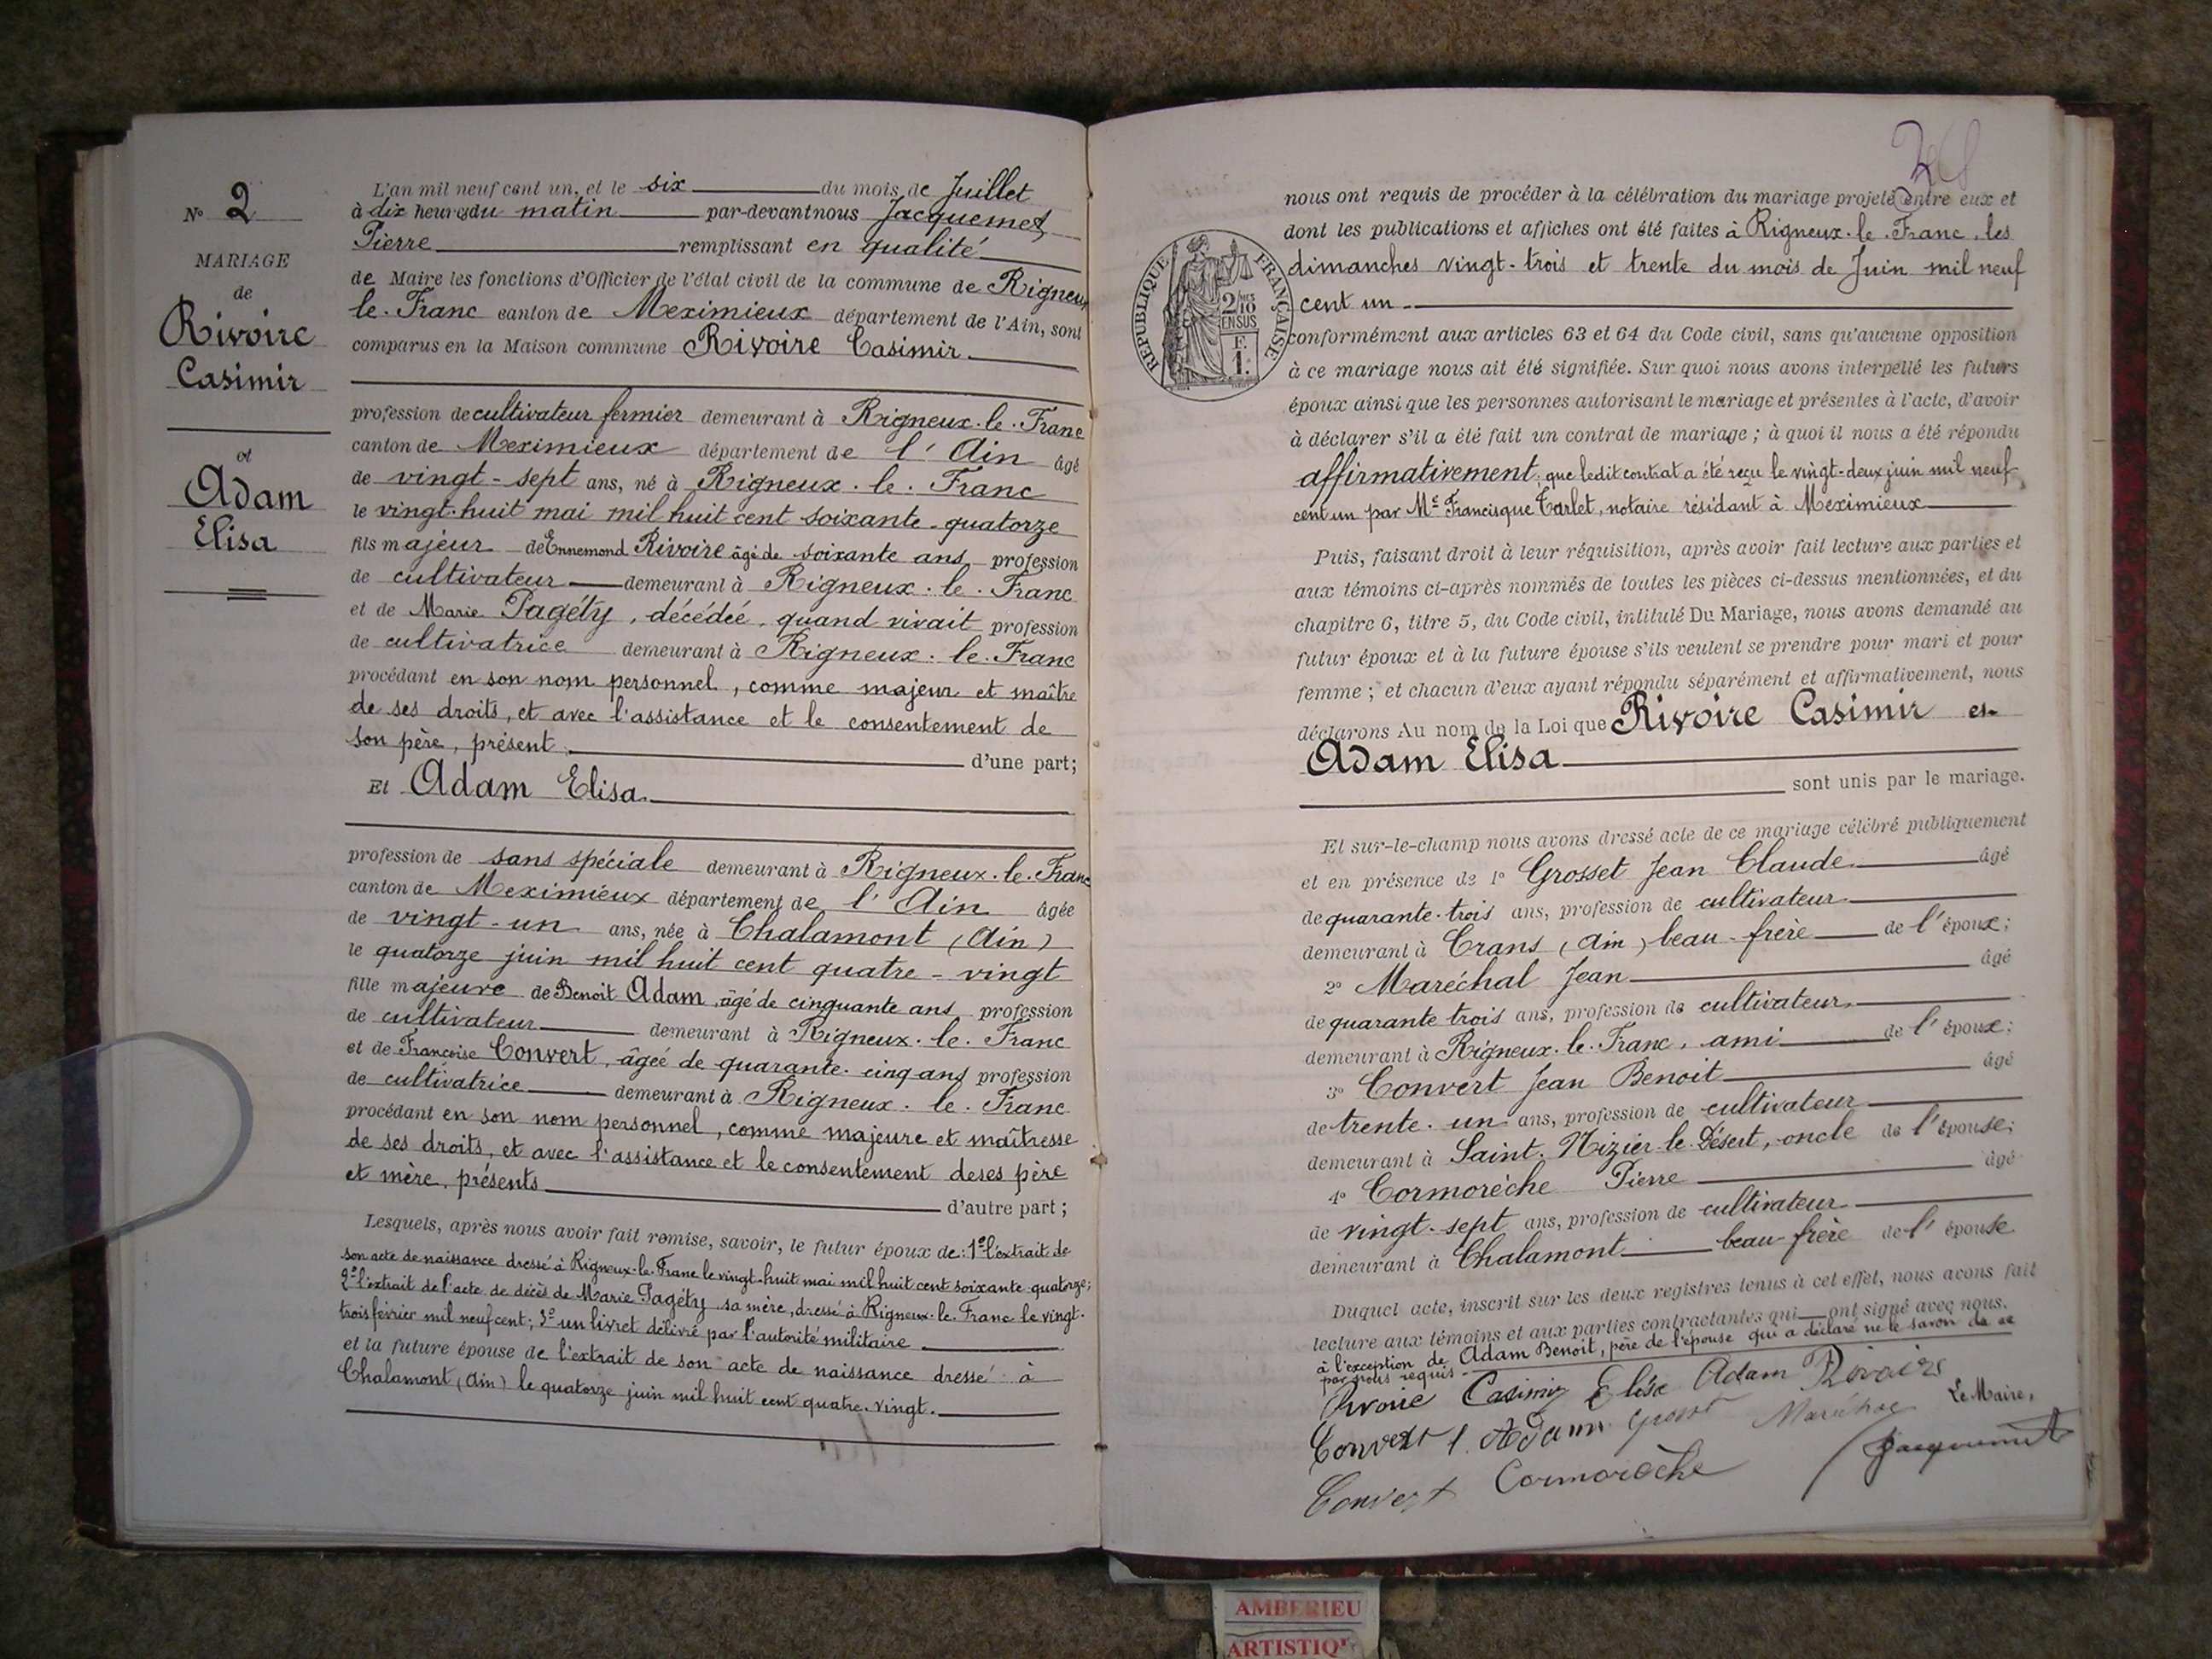 N° 2
MARIAGE
de
Rivoire
Casimir
et
Adam
Elisa
L'an mil neuf cent un, et le six du mois de Juillet
à dix heures du matin par-devant nous Jacquemet
Pierre remplissant en qualité
de Maire les fonctions d'Officier de l'état civil de la commune de Rigneux
le-Franc canton de Meximieux département de l'Ain, sont
comparus en la Maison commune Rivoire Casimir
profession de cultivateur fermier demeurant à Rigneux-le-Franc
canton de Meximieux département de l'Ain âgé
de vingt-sept ans, né à Rigneux-le-Franc
le vingt-huit mai mil huit cent soixante-quatorze
fils majeur de Ennemond Rivoire âgé de soixante ans profession
de cultivateur demeurant à Rigneux-le-Franc
et de Marie Pagéty, décédée, quand vivait profession
de cultivatrice demeurant à Rigneux-le-Franc
procédant en son nom personnel, comme majeur et maître
de ses droits, et avec l'assistance et le consentement de
son père, présent d'une part;
Et Adam Elisa
profession de sans spéciale demeurant à Rigneux-le-Franc
canton de Meximieux département de l'Ain âgée
de vingt-un ans, née à Chalamont (Ain)
le quatorze juin mil huit cent quatre-vingt
fille majeure de Benoit Adam, âgé de cinquante ans profession
de cultivateur demeurant à Rigneux-le-Franc
et de Françoise Convert, âgée de quarante-cinq ans profession
de cultivatrice demeurant à Rigneux-le-Franc
procédant en son nom personnel, comme majeure et maîtresse
de ses droits, et avec l'assistance et le consentement de ses père
et mère, présents d'autre part;
Lesquels, après nous avoir fait remise, savoir, le futur époux de: 1° l'extrait de
son acte de naissance dressé à Rigneux-le-Franc le vingt-huit mai mil huit cent soixante-quatorze;
2° l'extrait de l'acte de décès de Marie Pagéty sa mère, dressé à Rigneux-le-Franc le vingt-
trois février mil neuf cent; 3° un livret délivré par l'autorité militaire
et la future épouse de l'extrait de son acte de naissance dressé à
Chalamont (Ain) le quatorze juin mil huit cent quatre-vingt.
nous ont requis de procéder à la célébration du mariage projeté entre eux et
dont les publications et affiches ont été faites à Rigneux-le-Franc, les
dimanches vingt-trois et trente du mois de Juin mil neuf
cent un
RÉPUBLIQUE FRANÇAISE
2/10 EN SUS
F. 1.
conformément aux articles 63 et 64 du Code civil, sans qu'aucune opposition
à ce mariage nous ait été signifiée. Sur quoi nous avons interpellé les futurs
époux ainsi que les personnes autorisant le mariage et présentes à l'acte, d'avoir
à déclarer s'il a été fait un contrat de mariage; à quoi il nous a été répondu
affirmativement, que ledit contrat a été reçu le vingt-deux juin mil neuf
cent un par Me Francisque Tarlet, notaire résidant à Meximieux
Puis, faisant droit à leur réquisition, après avoir fait lecture aux parties et
aux témoins ci-après nommés de toutes les pièces ci-dessus mentionnées, et du
chapitre 6, titre 5, du Code civil, intitulé Du Mariage, nous avons demandé au
futur époux et à la future épouse s'ils veulent se prendre pour mari et pour
femme; et chacun d'eux ayant répondu séparément et affirmativement, nous
déclarons Au nom de la Loi que Rivoire Casimir et
Adam Elisa
sont unis par le mariage.
Et sur-le-champ nous avons dressé acte de ce mariage célébré publiquement
et en présence de 1° Grosset Jean Claude âgé
de quarante-trois ans, profession de cultivateur
demeurant à Crans (Ain) beau-frère de l'époux;
2° Maréchal Jean âgé
de quarante trois ans, profession de cultivateur
demeurant à Rigneux-le-Franc, ami de l'époux;
3° Convert Jean Benoit âgé
de trente-un ans, profession de cultivateur
demeurant à Saint-Nizier-le-Désert, oncle de l'épouse;
4° Cormorèche Pierre âgé
de vingt-sept ans, profession de cultivateur
demeurant à Chalamont beau-frère de l'épouse
Duquel acte, inscrit sur les deux registres tenus à cet effet, nous avons fait
lecture aux témoins et aux parties contractantes qui ont signé avec nous.
à l'exception de Adam Benoit, père de l'épouse qui a déclaré ne le savoir de ce
par nous requis
Rivoire Casimir Elisa Adam Rivoire
Convert f. Adam Grosset Maréchal Le Maire,
Convert Cormorèche Jacquemet
AMBERIEU
ARTISTIQ